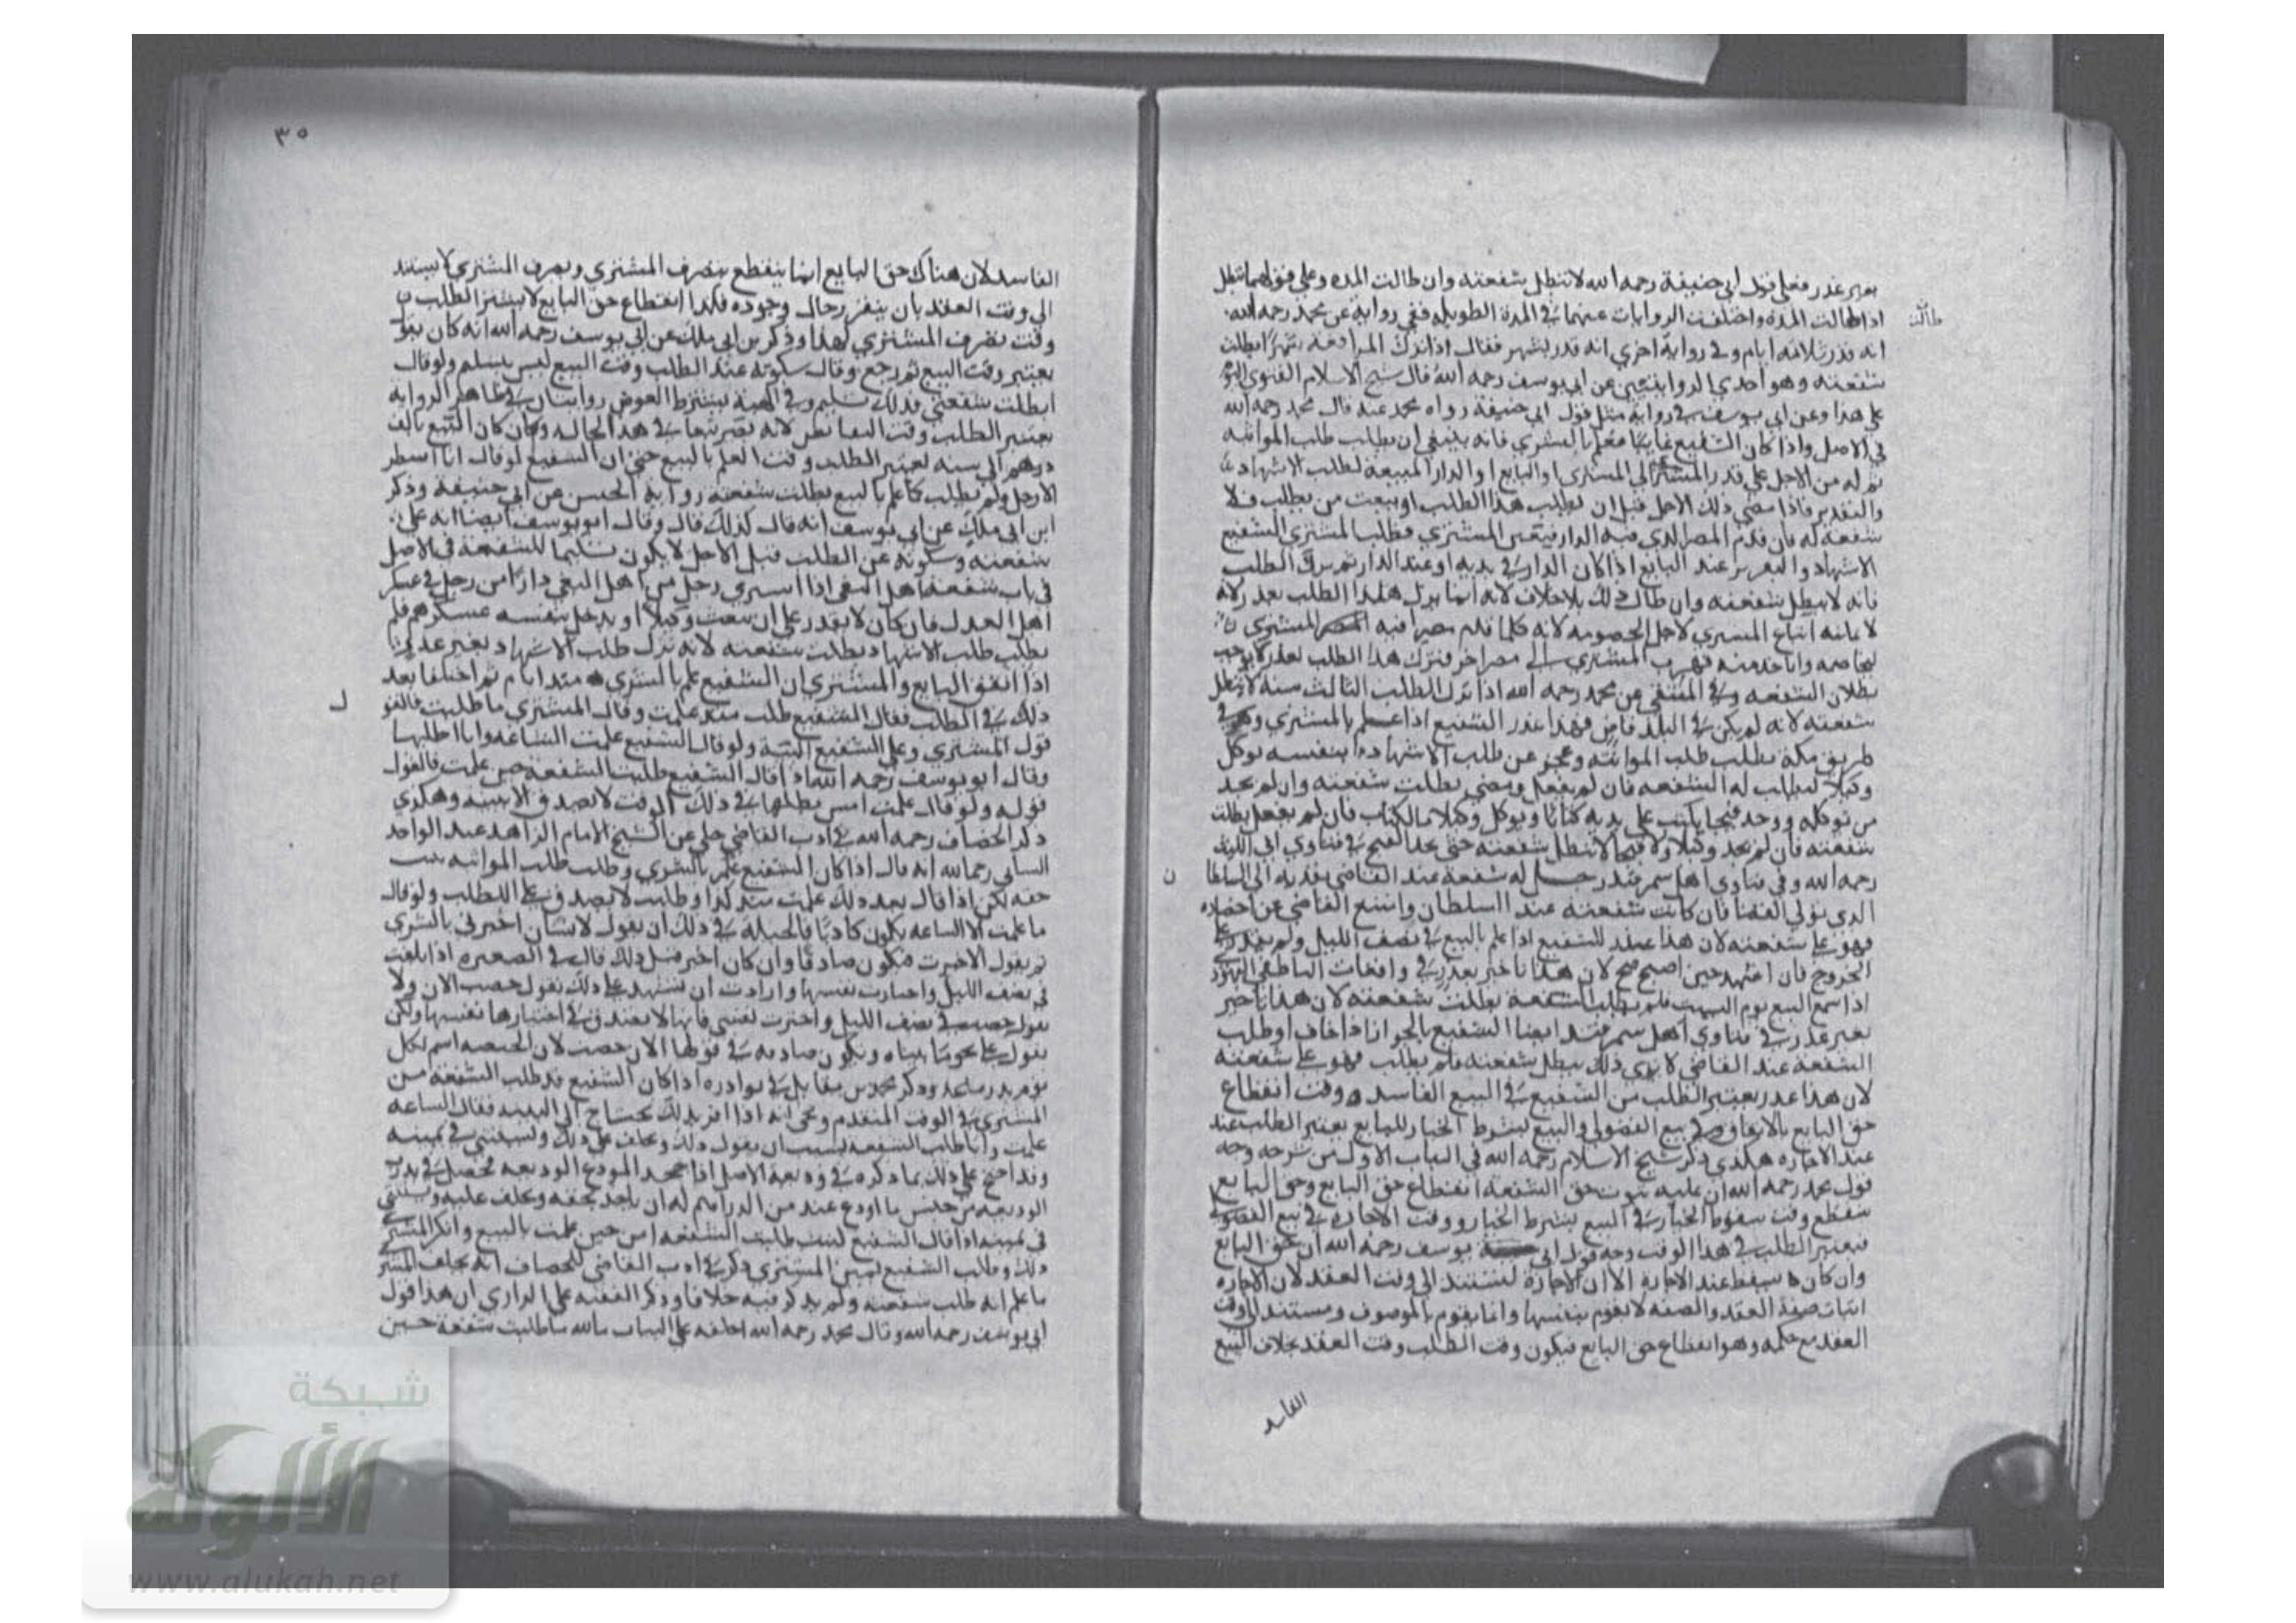 بغير عذر فعلى قول ابي حنيفة رحمه الله لا تبطل شفعته وان طالت المده وعلى قولهما تبطل
اذا طالت المدة واختلفت الروايات عنهما في المدة الطويله ففي رواية عن محمد رحمه الله
طالت
انه قدر بثلاثه ايام وفي رواية اخري انه قدر بشهر فقال اذا ترك المرافعة شهرا بطلت
شفعته وهو احدي الروايتين عن ابي يوسف رحمه الله قال شيخ الاسلام الفتوي اليوم
على هذا وعن ابي يوسف في رواية مثل قول ابي حنيفة رواه محمد عنه قال محمد رحمه الله
في الاصل واذا كان الشفيع غايبا فعلم بالشري فانه ينبغي ان يطلب طلب المواثبه
ثم له من الاجل على قدر المسير الى المشتري او البايع او الدار المبيعة لطلب الاشهاد
والتقدير فاذا مضي ذلك الاجل قبل ان يطلب هذا الطلب او يبعث من يطلب فلا
شفعه له فان قدم المصر الذي فيه الدار فتغيب المشتري فطلب المشتري الشفيع
الاشهاد والتقرير عند البايع اذا كان الدار في يديه او عند الدار ثم ترك الطلب
فانه لا تبطل شفعته وان طال ذلك بلا خلاف لانه انما ترك هذا الطلب بعذر لانه
لا يمكنه اتباع المشتري لاجل الخصومه لانه كلما قدم مصرا فيه المشتري
ليخاصمه واياخذ منه فهرب المشتري الى مصر اخر فترك هذا الطلب بعذر لا يوجب
بطلان الشفعه وفي المنتقي عن محمد رحمه الله اذا ترك الطلب الثالث سنه لا تبطل
شفعته لانه لم يكن في البلد قاض فهذا عذر الشفيع اذا علم بالمشتري وهو في
طريق مكة يطلب طلب المواثبه وعجز عن طلب الاشهاد بنفسه يوكل
وكيلا ليطلب له الشفعه فان لم يفعل ومضي بطلت شفعته وان لم يجد
من يوكله ووجد فيجا يكتب على يديه كتابا ويوكل وكيلا بالكتاب فان لم يفعل بطلت
شفعته فان لم يجد وكيلا ولا فيجا لا تبطل شفعته حتى يجد الفيج في فتاوي ابي الليث
رحمه الله وفي فتاوي اهل سمرقند رجل له شفعة عند القاضي يقدمه الى السلطا
ن
الذي يولي القضا فان كانت شفعته عند السلطان وامتنع القاضي عن احضاره
فهو على شفعته لان هذا عذر للشفيع اذا علم بالبيع في نصف الليل ولم يقدر على
الخروج فان اشهد حين اصبح صح لان هذا تاخير بعذر في واقعات الناطفي اليهود
اذا سمع البيع يوم السبت فلم يطلب الشفعة بطلت شفعته لان هذا تاخير
بغير عذر في فتاوي اهل سمرقند ايضا الشفيع بالجوار اذا خاف او طلب
الشفعة عند القاضي لا يري ذلك يبطل شفعته فلم يطلب فهو على شفعته
لان هذا عذر يعتبر الطلب من الشفيع في البيع الفاسد وقت انقطاع
حق البايع بالاتفاق وفي بيع الفضولي والبيع بشرط الخيار للبايع يعتبر الطلب عند
عند الاجازه هكذي ذكر شيخ الاسلام رحمه الله في الباب الاول من شرحه وجه
قول محمد رحمه الله ان عليه ثبوت حق الشفعة انقطاع حق البايع وحق البايع
ينقطع وقت سقوط الخيار في البيع بشرط الخيار ووقت الاجازه في بيع الفضولي
فيعتبر الطلب في هذا الوقت وجه قول ابي يوسف رحمه الله ان حق البايع
وان كان يسقط عند الاجازة الا ان الاجازة تستند الى وقت العقد لان الاجازه
اثبات صفة العقد والصفه لا تقوم بنفسها وانما تقوم بالموصوف ومستند الى وقت
العقد مع حكمه وهو انقطاع حق البايع فيكون وقت الطلب وقت العقد بخلاف البيع
الفاسد
٣٥
الفاسد لان هناك حق البايع انما ينقطع بتصرف المشتري وتصرف المشتري لا يستند
الى وقت العقد بان يتغير حال وجوده فكذا انقطاع حق البايع لا الطلب
وقت تصرف المشتري لهذا وذكر بن ابي ملك عن ابي يوسف رحمه الله انه كان يقول
يعتبر وقت البيع ثم رجع وقال سكوته عند الطلب وقت البيع ليس بتسلم ولو قال
ابطلت شفعتي فذلك تسليم وفي الهبة بشرط العوض روايتان في ظاهر الرواية
يعتبر الطلب وقت التقابض لانه تصير بيعا في هذه الحاله وكان كان البيع بالف
درهم الى سنه يعتبر الطلب وقت العلم بالبيع حتى ان الشفيع لو قال انا انتظر
الاجل ولم يطلب كما علم بالبيع بطلت شفعته رواية الحسن عن ابي حنيفة وذكر
ابن ابي ملك عن ابي يوسف انه قال كذلك قال وقال ابو يوسف ايضا انه على
شفعته وسكوته عن الطلب قبل الاجل لا يكون تسليما للشفعة في الاصل
في باب شفعة اهل البغي اذا اشتري رجل من اهل البغي دارا من رجل في عسكر
اهل العدل فان كان لا يقدر على ان يبعث وكيلا او يدخل بنفسه عسكرهم فلم
يطلب طلب الاشهاد بطلت شفعته لانه ترك طلب الاشهاد بغير عذر
اذا اتفق البايع والمشتري ان الشفيع علم بالشري منذ ايام ثم اختلفا بعد
ذلك في الطلب فقال الشفيع طلبت منذ علمت وقال المشتري ما طلبت فالقو
ل
قول المشتري وعلى الشفيع البينة ولو قال الشفيع علمت الساعه وانا اطلبها
وقال ابو يوسف رحمه الله اذا قال الشفيع طلبت الشفعه حين علمت فالقول
قوله ولو قال علمت امس بطلبها في ذلك الوقت لا يصدق الا ببينه وهكذي
ذكر الخصاف رحمه الله في ادب القاضي حكي عن الشيخ الامام الزاهد عبد الواحد
رحمه الله انه قال اذا كان الشفيع علم بالشري وطلب طلب المواثبه يثبت
حقه لكن اذا قال بعد ذلك علمت منذ كذا وطلبت لا يصدق على الطلب ولو قال
ما علمت الا الساعه يكون كاذبا فالحيلة في ذلك ان يقول لانسان اخبرني بالشري
ثم يقول الاخبرت فيكون صادقا وان كان اخبر قبل ذلك قال في الصغيره اذا بلغت
في نصف الليل واختارت نفسها وارادت ان تشهد على ذلك تقول حضت الان ولا
تقول حضت في نصف الليل واخترت نفسي فانها لا تصدق في اختيارها نفسها ولكن
تقول على نحو ما بيناه وتكون صادقه في قولها الان حضت لان الحيضه اسم لكل
وذكر محمد بن مقاتل في نوادره اذا كان الشفيع قد طلب الشفعة من
المشتري في الوقت المتقدم وخشي انه اذا اقر بذلك يحتاج الى البينه فقال الساعه
علمت وانا طالب الشفعه يسعه ان يقول ذلك ويحلف على ذلك ويستثني في يمينه
وقد احتج على ذلك بما ذكره في وديعة الاصل اذا جحد المودع الوديعة فحصل في يدي
الوديعه من جنس ما اودع عند من الدراهم له ان ياخذ بحقه ويحلف عليه ويستثني
في يمينه اذا قال الشفيع لست طلبت الشفعه من حين علمت بالبيع وانكر المشتري
ذلك وطلب الشفيع يمين المشتري ذكر في ادب القاضي للخصاف انه يحلف المشتر
ما علم انه طلب شفعته ولم يذكر فيه خلافا وذكر الفقيه على الرازي ان هذا قول
ابي يوسف رحمه الله وقال محمد رحمه الله احلفه على البتات بالله ما طلبت شفعة حين
شبكة
الألوكة
www.alukah.net